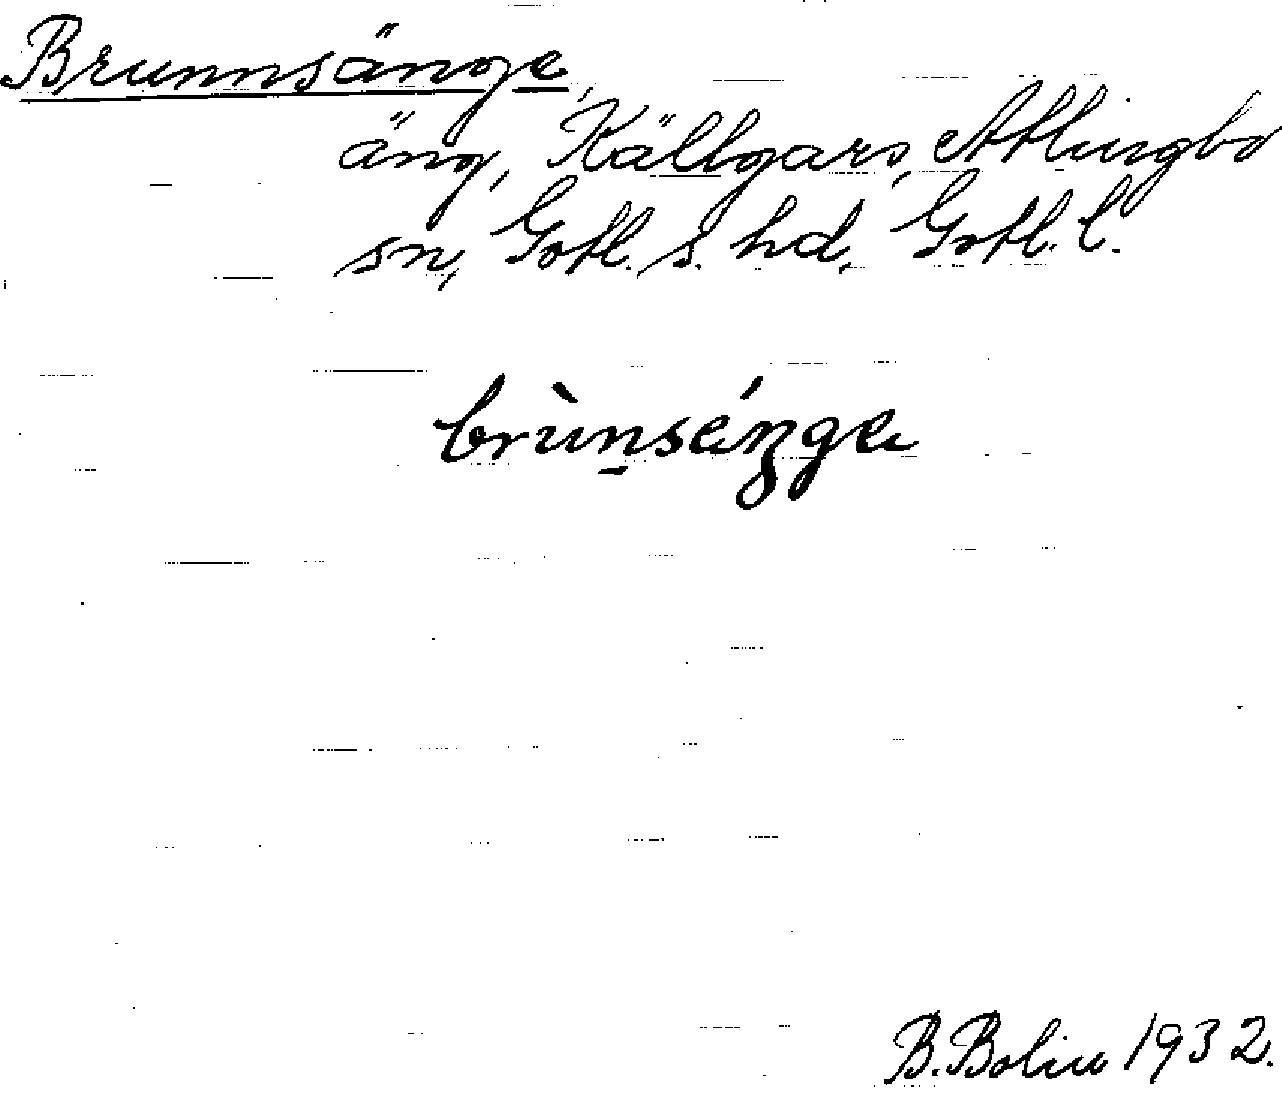 Brunnsänge,
äng, Källgars, Atlingbo
sn, Gotl. s. hd, Gotl. l.
brùn̠séŋge
B. Bolin 1932.